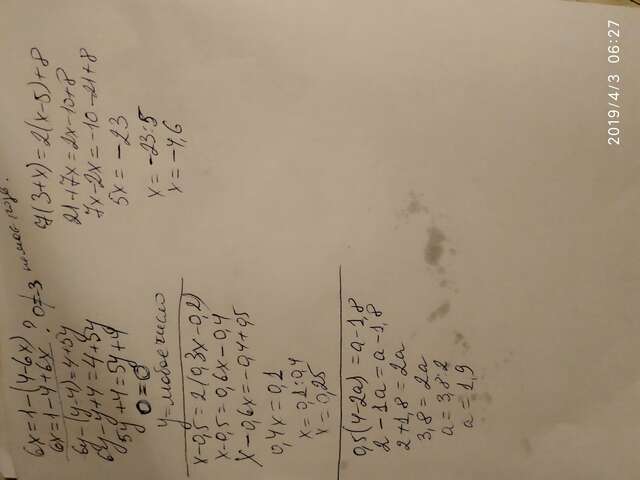 6x = 1 - (4-6x)
6x = 1 - 4 + 6x ? 0 ≠ -3
6y - (y-4) = 4+5y
6y - y + 4 = 4+5y
5y + 4 = 5y + 4
0 = 0
y = любое число
x - 0,5 = 2(0,3x - 0,2)
x - 0,5 = 0,6x - 0,4
x - 0,6x = -0,4 + 0,5
0,4x = 0,1
x = 0,1 : 0,4
x = 0,25
0,5(4-2a) = a - 1,8
2 - 1a = a - 1,8
2 + 1,8 = 2a
3,8 = 2a
a = 3,8 : 2
a = 1,9
7(3+x) = 2(x-5) + 8
21 + 7x = 2x - 10 + 8
7x - 2x = -10 - 21 + 8
5x = -23
x = -23 : 5
x = -4,6
2019/4/3 06:27